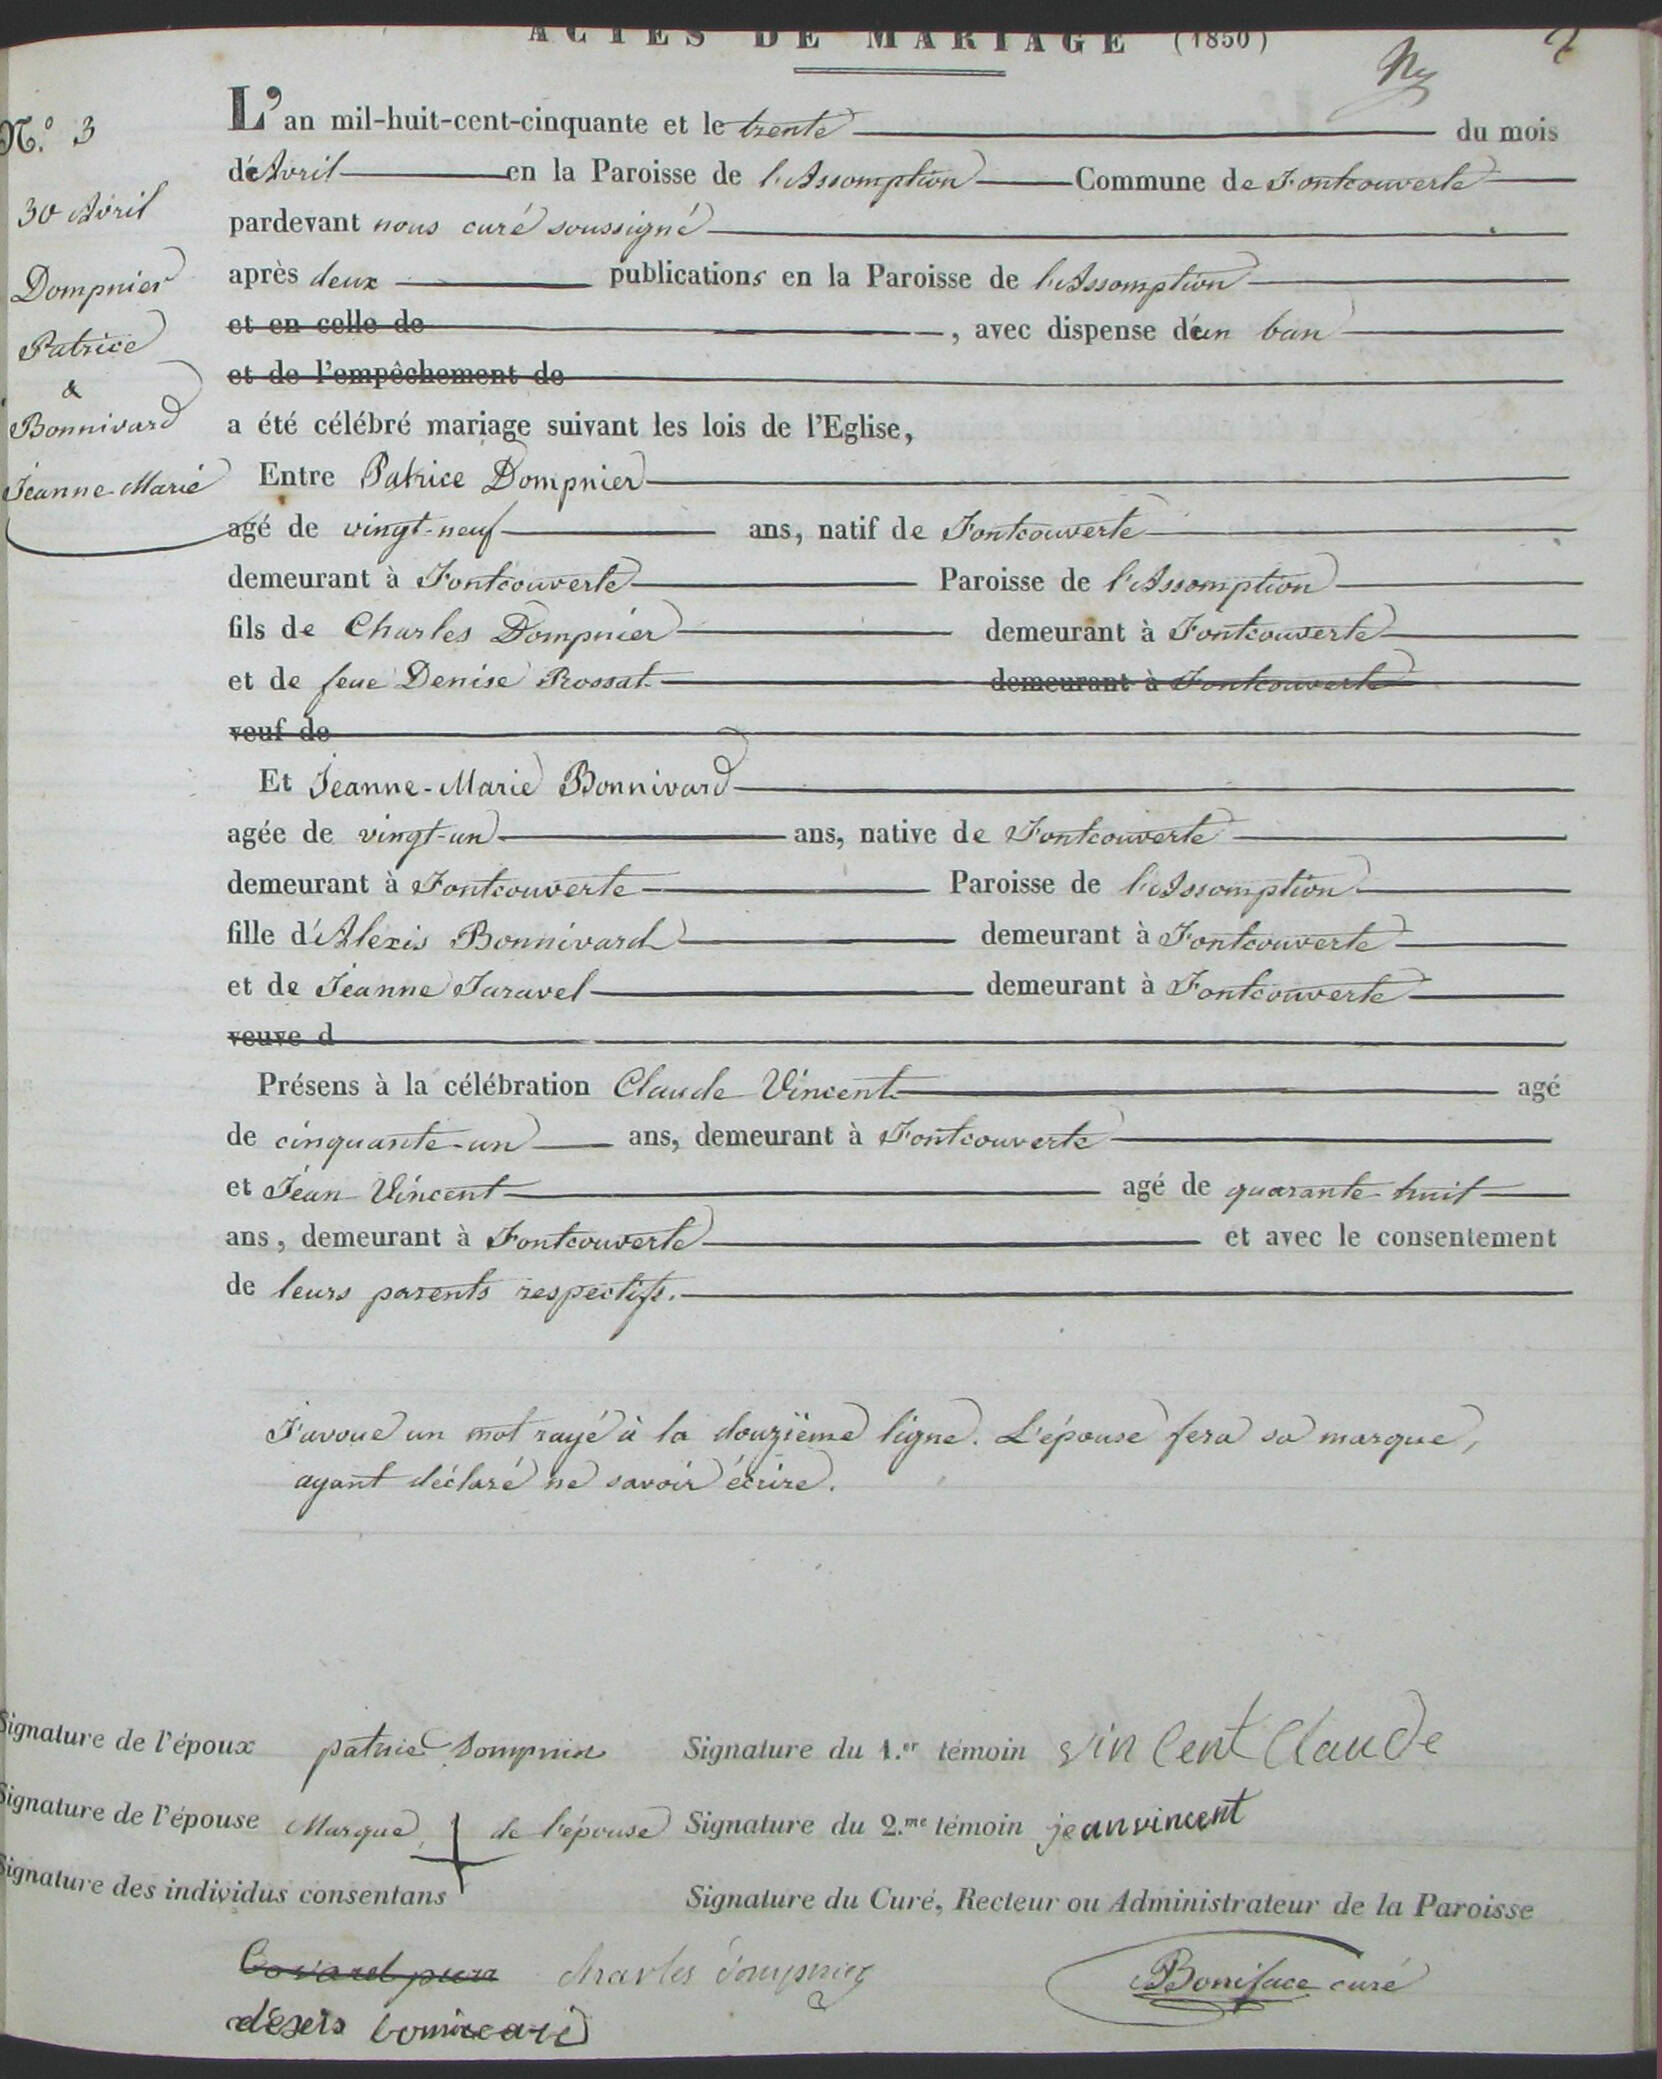 ACTES DE MARIAGE (1850)
2
N.º 3
30 Avril
Dompnier
Patrice
&
Bonnivard
Jeanne-Marie
L'an mil-huit-cent-cinquante et le trente du mois
d'Avril en la Paroisse de l'Assomption Commune de Fontcouverte
pardevant nous curé soussigné
après deux publications en la Paroisse de l'Assomption
et en celle de , avec dispense d'un ban
et de l'empêchement de
a été célébré mariage suivant les lois de l'Eglise,
Entre Patrice Dompnier
agé de vingt-neuf ans, natif de Fontcouverte
demeurant à Fontcouverte Paroisse de l'Assomption
fils de Charles Dompnier demeurant à Fontcouverte
et de feue Denise Rossat demeurant à Fontcouverte
veuf de
Et Jeanne-Marie Bonnivard
agée de vingt-un ans, native de Fontcouverte
demeurant à Fontcouverte Paroisse de l'Assomption
fille d'Alexis Bonnivard demeurant à Fontcouverte
et de Jeanne Taravel demeurant à Fontcouverte
veuve d
Présens à la célébration Claude Vincent agé
de cinquante-un ans, demeurant à Fontcouverte
et Jean Vincent agé de quarante-huit
ans, demeurant à Fontcouverte et avec le consentement
de leurs parents respectifs.
J'avoue un mot rayé à la douzième ligne. L'épouse fera sa marque,
ayant déclaré ne savoir écrire.
Signature de l'époux patrice Dompnier Signature du 1.er témoin vincent Claude
Signature de l'épouse Marque de l'épouse Signature du 2.me témoin jean vincent
Signature des individus consentans Signature du Curé, Recteur ou Administrateur de la Paroisse
Charles Dompnier Boniface curé